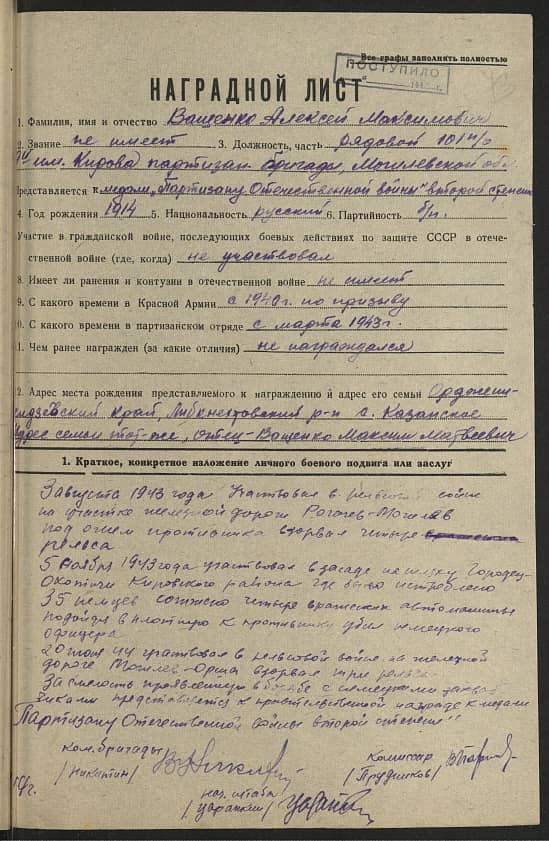 Все графы заполнять полностью
ПОСТУПИЛО
НАГРАДНОЙ ЛИСТ
1. Фамилия, имя и отчество Ващенко Алексей Максимович
2. Звание не имеет 3. Должность, часть рядовой 101 п/о
им. Кирова партизан бригады, Могилевской обл
Представляется к медали „Партизану Отечественной войны" второй степени
4. Год рождения 1914 5. Национальность русский 6. Партийность б/п.
Участие в гражданской войне, последующих боевых действиях по защите СССР в отече-
ственной войне (где, когда) не участвовал
8. Имеет ли ранения и контузии в отечественной войне не имеет
9. С какого времени в Красной Армии с 1940г. по призыву
10. С какого времени в партизанском отряде с марта 1943г.
11. Чем ранее награжден (за какие отличия) не награждался
12. Адрес места рождения представляемого к награждению и адрес его семьи Орджони-
кидзевский край, Либкнехтовский р-н с. Казанское
Адрес семьи тот-же, отец-Ващенко Максим Матвеевич
1. Краткое, конкретное изложение личного боевого подвига или заслуг
3 августа 1943 года участвовал в рельсовой войне
на участке железной дороги Рогачев-Могилев
под огнем противника взорвал четыре
рельса
5 ноября 1943 года участвовал в засаде на шляху Городец-
Окотичи Кировского района где было истреблено
35 немцев сожжено четыре вражеских автомашины
подойдя вплотную к противнику убил немецкого
офицера
20 июня 44 участвовал в рельсовой войне на железной
дороге Могилев-Орша взорвал три рельса
За смелость проявленную в борьбе с немецкими захват
чиками представляется к правительственной награде к медали
Партизану Отечественной войны второй степени"
Ком. бригады
/Никитин/
Комиссар
/Прудников/
нач. штаба
/Царанкин/